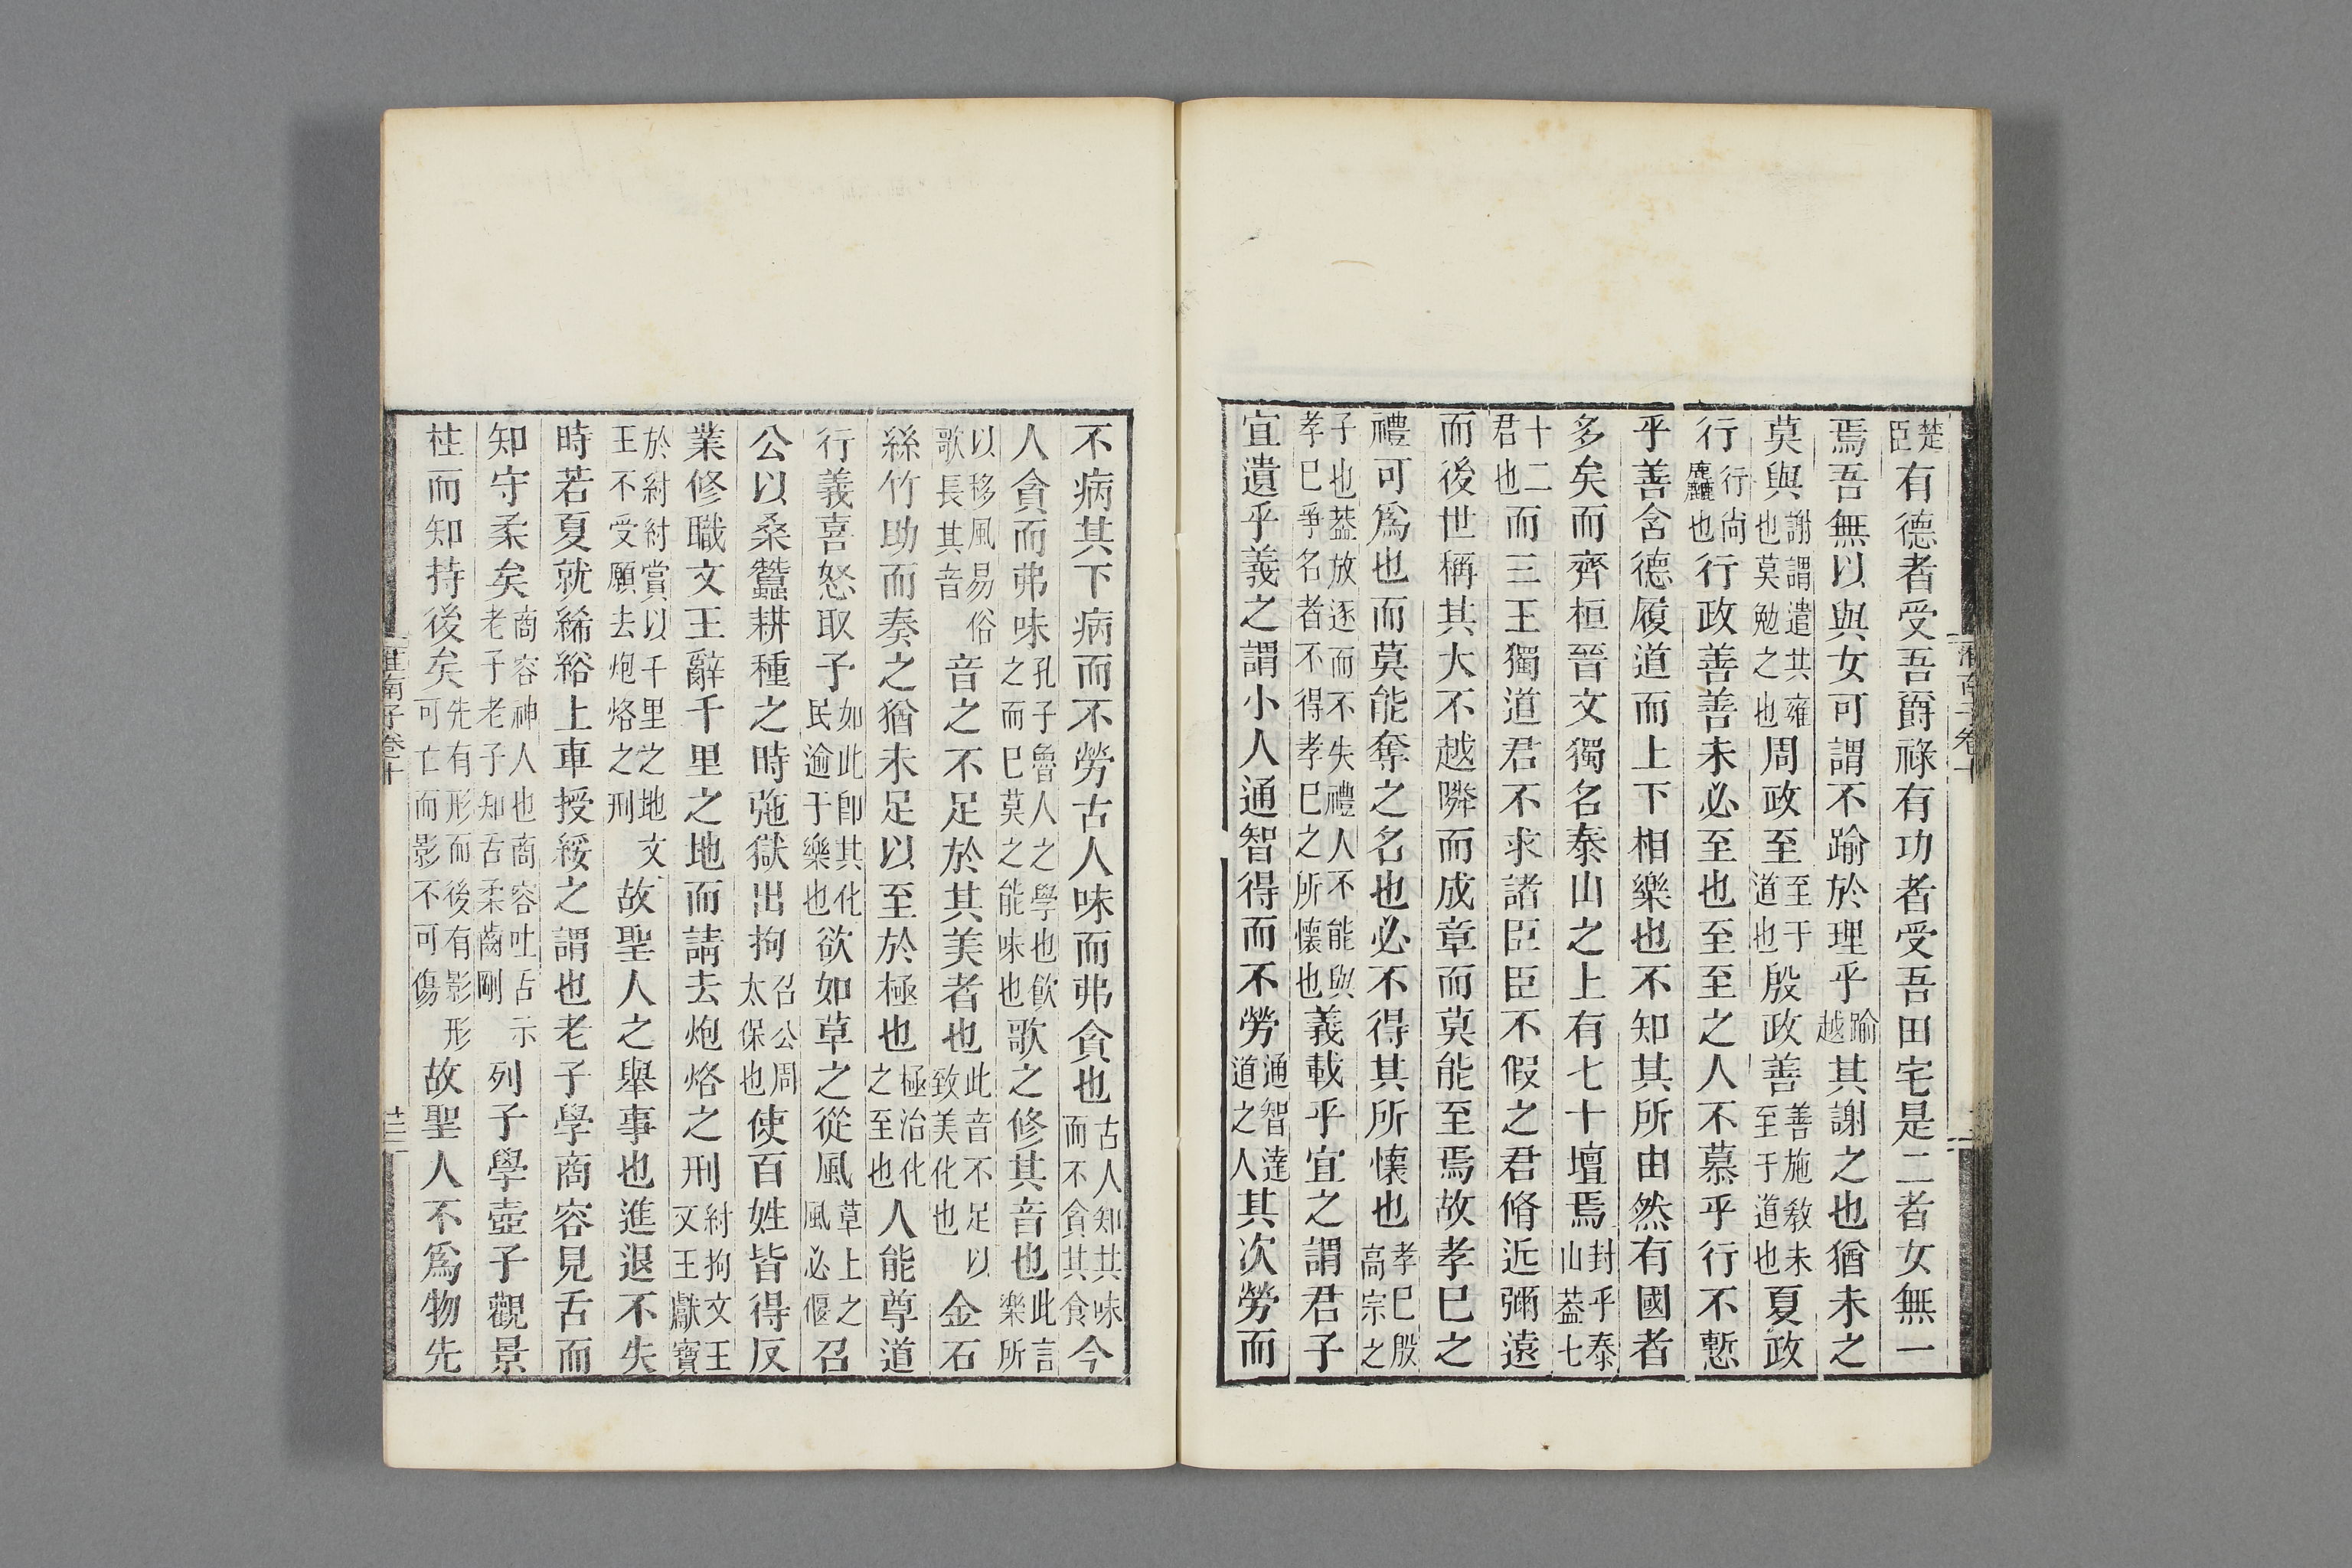 楚臣有德者受吾爵祿有功者受吾田宅是二者女無一
焉吾無以與女可謂不踰於理乎踰越其謝之也猶未之
莫與謝謂遣其雍也莫勉之也周政至至于道也殷政善善施敎未至于道也夏政
行行尚麤也行政善善未必至也至至之人不慕乎行不慙
乎善含德履道而上下相樂也不知其所由然有國者
多矣而齊桓晉文獨名泰山之上有七十壇焉封乎泰山葢七
十二君也而三王獨道君不求諸臣臣不假之君脩近彌遠
而後世稱其大不越隣而成章而莫能至焉故孝巳之
禮可爲也而莫能奪之名也必不得其所懷也孝巳殷高宗之
子也葢放逐而不失禮人不能與孝巳爭名者不得孝巳之所懷也義載乎宜之謂君子
宜遺乎義之謂小人通智得而不勞通智達道之人其次勞而
不病其下病而不勞古人味而弗貪也古人知其味而不貪其食今
人貪而弗味孔子魯人之學也飮之而巳莫之能味也歌之修其音也此言樂所
以移風易俗歌長其音音之不足於其美者也此音不足以致美化也金石
絲竹助而奏之猶未足以至於極也極治化之至也人能尊道
行義喜怒取予如此卽其化民逾于樂也欲如草之從風草上之風必偃召
公以桑蠶耕種之時弛獄出拘召公周太保也使百姓皆得反
業修職文王辭千里之地而請去炮烙之刑紂拘文王文王獻寶
於紂紂賞以千里之地文王不受願去炮烙之刑故聖人之舉事也進退不失
時若夏就絺綌上車授綏之謂也老子學商容見舌而
知守柔矣商容神人也商容吐舌示老子老子知舌柔齒剛列子學壺子觀景
柱而知持後矣先有形而後有影形可亡而影不可傷故聖人不爲物先
淮南子卷十